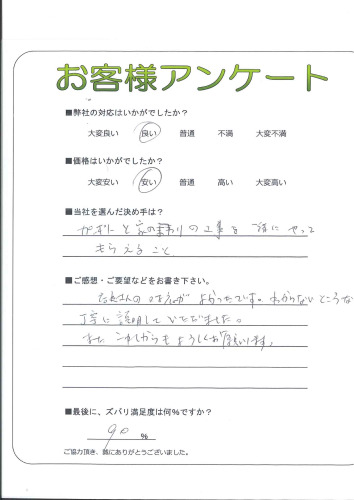 お客様アンケート
■弊社の対応はいかがでしたか?
大変良い 良い 普通 不満 大変不満
■価格はいかがでしたか?
大変安い 安い 普通 高い 大変高い
■当社を選んだ決め手は?
と家のまわりの工事を 一緒にやって
もらえること
■ご感想・ご要望などをお書き下さい。
の ほうが よかったです。わからないところな
丁寧に説明していただきました。
また これからもよろしくお願います。
■最後に、ズバリ満足度は何%ですか?
90 %
ご協力頂き、誠にありがとうございました。